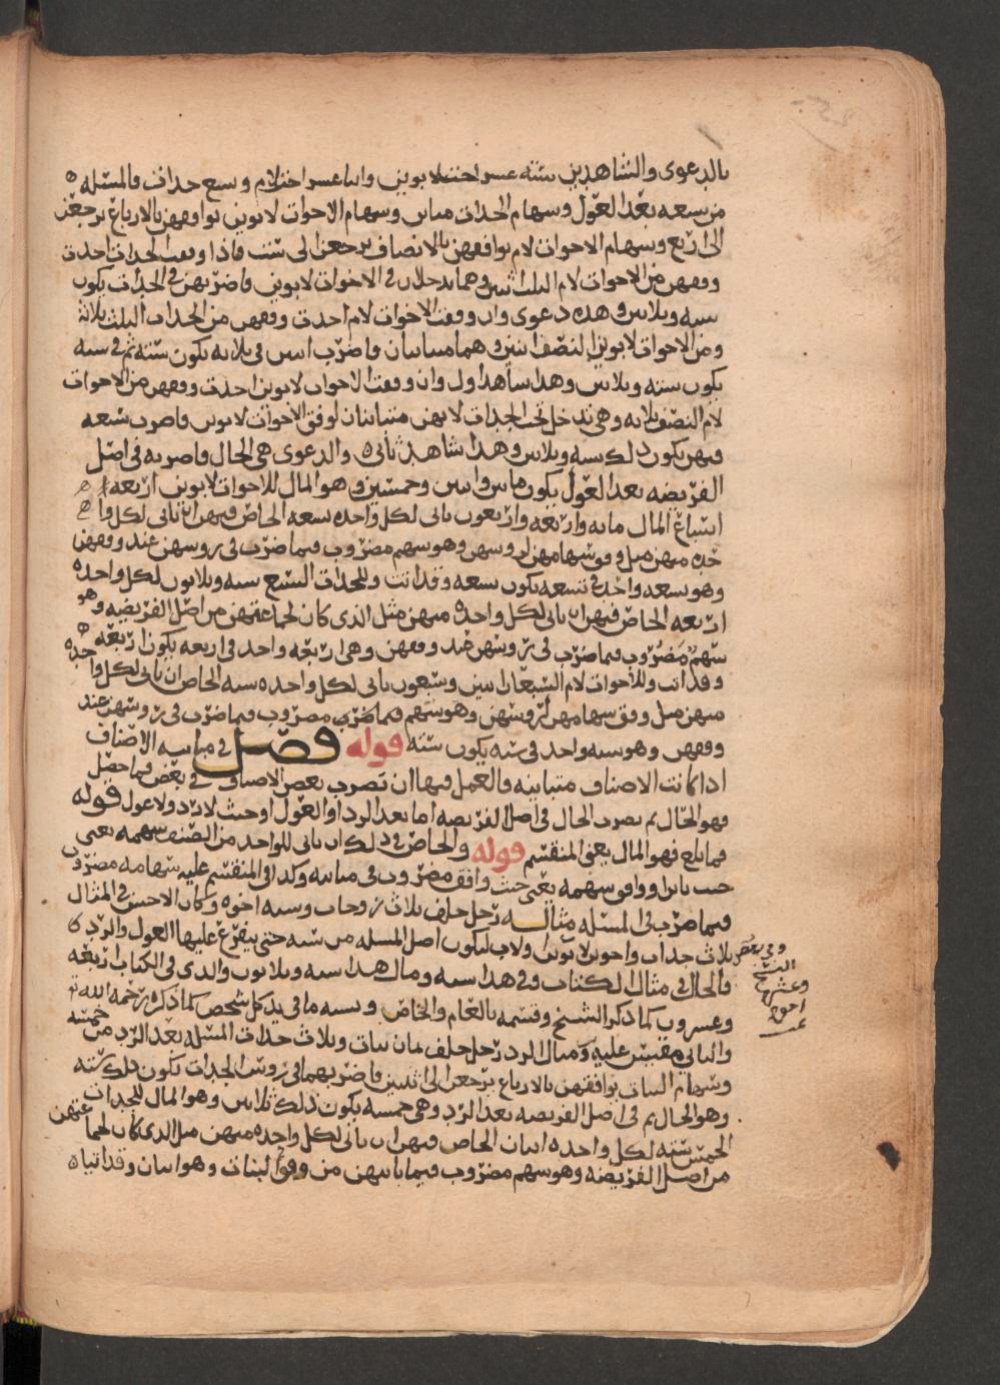 بالدعوى والشاهدين ستة عشر اختا لابوين واثنا عشر اختا لام وتسع جدات فالمسئله
من سبعه بعد العول وسهام الجدات مباين وسهام الاخوات لابوين توافقهن بالارباع يرجعن
الى اربع وسهام الاخوات لام توافقهن بالانصاف يرجعن الى ست فاذا وقفت الجدات احدت
وفقهن من الاخوات لام الثلث اثنين وهما يدخلان في الاخوات لابوين فاضربهن في الجدات يكون
سته وثلاثين وهذه دعوى وان وقفت الاخوات لام احدت وفقهن من الجدات الثلث ثلاثة
ومن الاخوات لابوين النصف اثنين وهما متباينان فاضرب اثنين في ثلاثه يكون سته ثم في سته
يكون سته وثلاثين وهذا شاهد اول وان وقفت الاخوات لابوين احدت وفقهن من الاخوات
لام النصف ثلاثه وهي تدخل تحت الجدات لانهن متباينان لوفق الاخوات لابوين فاضرب تسعه
فيهن يكون ذلك سته وثلاثين وهذا شاهد ثاني والدعوى هي الحال فاضربه في اصل
الفريضه بعد العول يكون مائتين واثنين وخمسين وهو المال للاخوات لابوين اربعه
اسباع المال مائه واربعه واربعون ياتي لكل واحده تسعه الخاص فيهن ان ياتي لكل وا
حده منهن مثل وفق سهامهن لروسهن وهو سهم مضروب فيما ضرب في روسهن عند وفقهن
وهو تسعه واحد في تسعه يكون تسعه وقد اتت وللجدات السبع سته وثلاثون لكل واحده
اربعه الخاص فيهن ان ياتي لكل واحده منهن مثل الذي كان لجماعتهن من اصل الفريضه وهو
سهم مضروب فيما ضرب في روسهن عند وفقهن وهي اربعه واحد في اربعه يكون اربعه
وقد اتت وللاخوات لام السبعان اثنين وسبعون ياتي لكل واحده سته الخاص ان ياتي لكل واحده
منهن مثل وفق سهامهن لروسهن وهو سهم مضروب فيما ضرب في روسهن عند
وفقهن وهو سته واحد في سته يكون سته قوله فصل في مباينه الاصناف
اذا كانت الاصناف متباينه فالعمل فيها ان تضرب بعض الاصناف في بعض فما حصل
فهو الحال ثم يضرب الحال في اصل الفريضه اما بعد الرد او العول او حيث لا رد ولا عول قوله
فما بلغ فهو المال يعني المنقسم قوله والخاص في ذلك ان ياتي للواحد من الصنف سهمه يعني
حيث باين او وافق سهمه يعني حيث وافق مضروب في مباينه وكذا في المنقسم عليه سهامه مضروب
فيما ضرب في المسئله مثاله رجل خلف ثلاث زوجات وسته اخوه وكان الاحسن في المثال
ثلاث جدات واخوين لابوين او لاب ليكون اصل المسئله من سته حتى يتفرع عليها العول والرد
فالحال في مثال الكتاب وفي هذا سته ومال هذا سته وثلاثون والذي في الكتاب اربعه
وعشرون كما ذكر الشيخ وقسمه بالعام والخاص ونسبه ما في يد كل شخص كما ذكره رحمه الله
والثاني مقيس عليه ومثال الرد رجل خلف ثمان بنات وثلاث جدات المسئله بعد الرد من خمسه
وسهام البنات توافقهن بالارباع يرجعن الى اثنين فاضربهما في روس الجدات يكون ذلك سته
وهو الحال ثم في اصل الفريضه بعد الرد وهي خمسه يكون ذلك ثلاثين وهو المال للجدات
الخمس سته لكل واحده اثنان الخاص فيهن ان ياتي لكل واحده منهن مثل الذي كان لجماعتهن
من اصل الفريضه وهو سهم مضروب فيما باينهن من وفق البنات وهو اثنان وقد اتيا
وفي بعض
النسخ
وعشره
اخوه